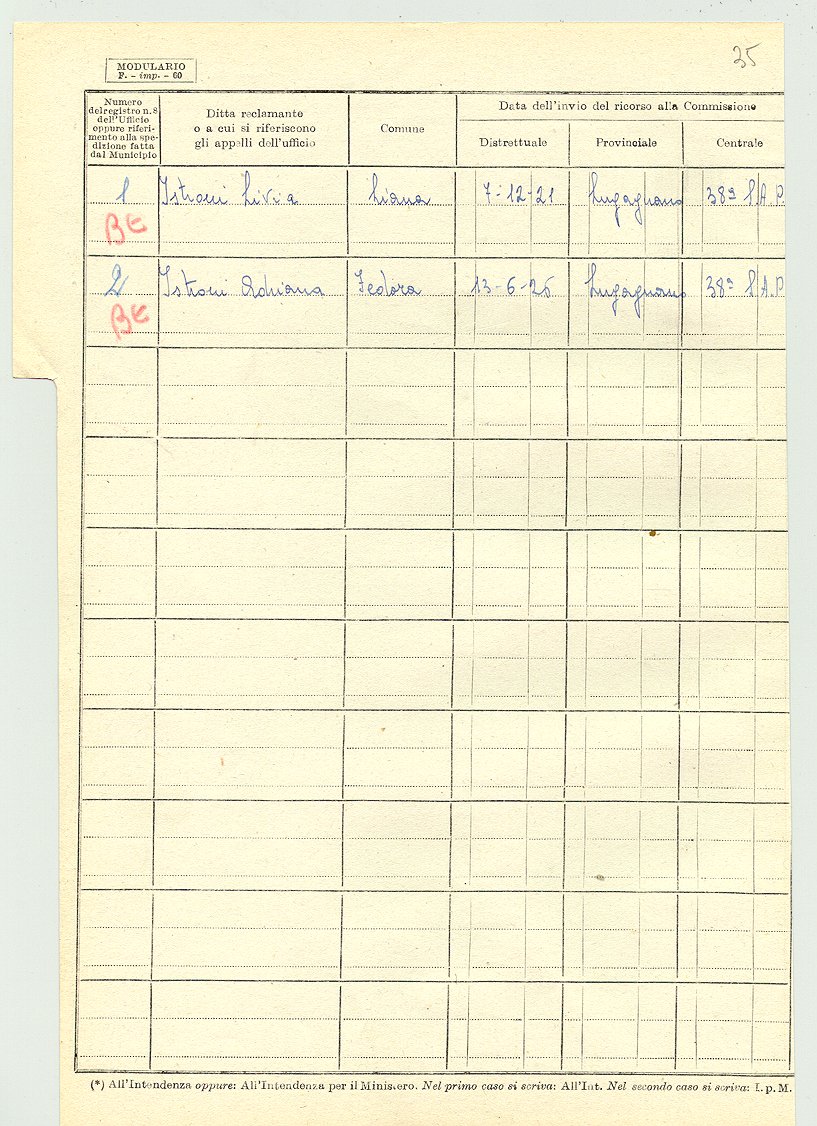 35
MODULARIO
F. - imp. - 60
Numero
del registro n. 8
dell'Ufficio
oppure riferi-
mento alla spe-
dizione fatta
dal Municipio
Ditta reclamante
o a cui si riferiscono
gli appelli dell'ufficio
Comune
Data dell'invio del ricorso alla Commissione
Distrettuale
Provinciale
Centrale
1 Istroni Livia Liana 7-12-21 Lugagnano 38ª S.A.P.
BE
2 Istroni Adriana Fedora 13-6-26 Lugagnano 38ª S.A.P
BE
(*) All'Intendenza oppure: All'Intendenza per il Ministero. Nel primo caso si scriva: All'Int. Nel secondo caso si scriva: I. p. M.